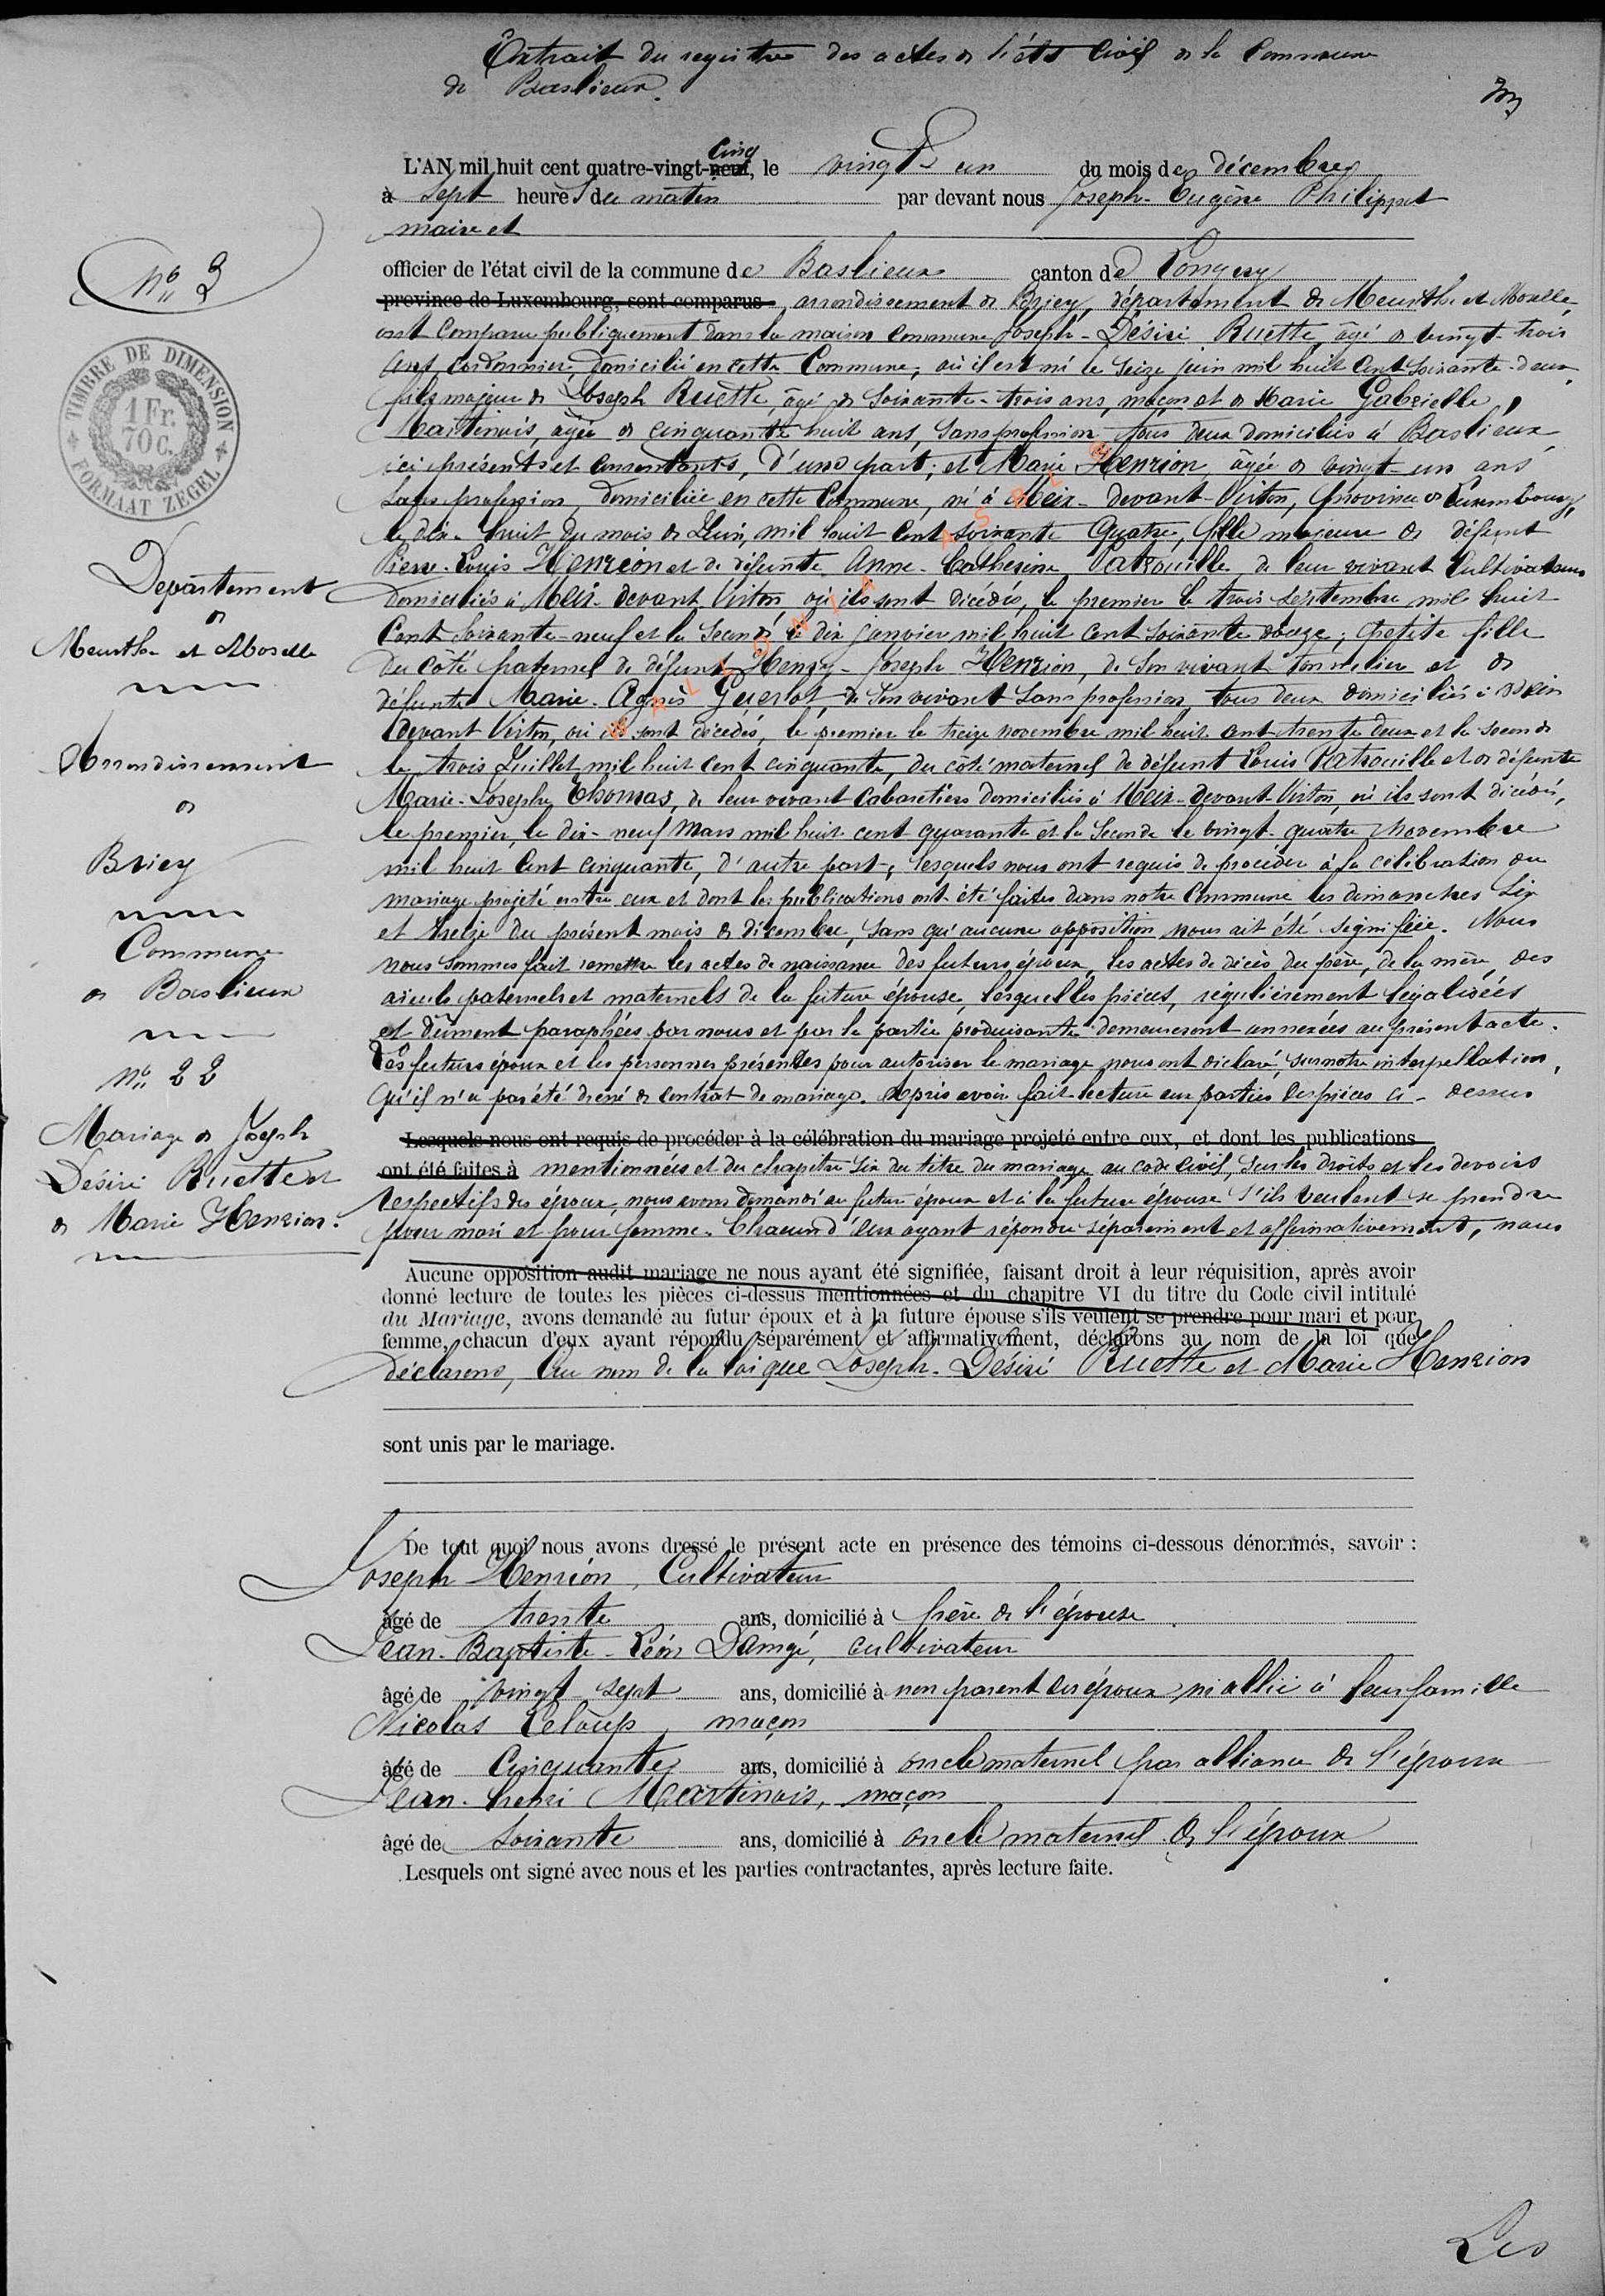 Extrait du registre des actes de l'état Civil de la Commune
de Baslieux.
L'AN mil huit cent quatre-vingt-neuf cinq, le vingt un du mois de décembre
à sept heures du matin par devant nous Joseph-Eugène Philippet
maire et
officier de l'état civil de la commune de Baslieux canton de Longwy
N° 3
province de Luxembourg, sont comparus arrondissement de Briey, département de Meurthe et Moselle,
ont comparu publiquement dans la maison commune Joseph-Désiré Ruette, âgé de vingt-trois
ans, cordonnier, domicilié en cette Commune, où il est né le seize juin mil huit cent soixante-deux,
fils majeur de Joseph Ruette, âgé de soixante-trois ans, maçon et de Marie Gabrielle,
Martinois, âgée de cinquante huit ans, sans profession tous deux domiciliés à Baslieux
ici présents et consentants, d'une part; et Marie Henrion âgée de vingt-un ans
sans profession, domiciliée en cette Commune, né à Meix-devant-Virton, (province de Luxembourg,
le dix-huit du mois de Juin, mil huit cent soixante quatre, fille majeure de défunt
Pierre-Louis Henrion et de défunte Anne-Catherine Patrouille de leur vivant Cultivateurs
domiciliés à Meix-devant Virton, où ils sont décédés, le premier le trois septembre mil huit
cent soixante-neuf et la seconde le dix janvier mil huit cent soixante douze; petite fille
du côté paternel de défunt Henry-Joseph Henrion, de son vivant tonnelier et de
défunte Marie-Agnès Guerlot, de son vivant sans profession, tous deux domiciliés à Meix
devant Virton, où ils sont décédés, le premier le treize novembre mil huit cent trente deux et la seconde
le trois Juillet mil huit cent cinquante, du côté maternel de défunt Louis Patrouille et de défunte
Marie-Josephe Thomas, de leur vivant Cabaretiers domiciliés à Meix-devant-Virton, où ils sont décédés,
le premier, le dix-neuf Mars mil huit cent quarante et la seconde le vingt-quatre Novembre
mil huit cent cinquante, d'autre part; lesquels nous ont requis de procéder à la célébration du
mariage projeté entre eux et dont les publications ont été faites dans notre Commune les dimanches six
et treize du présent mois de décembre, sans qu'aucune opposition nous ait été signifiée. Nous
nous sommes fait remettre les actes de naissance des futurs époux, les actes de décès du père, de la mère, des
aïeuls paternels et maternels de la future épouse, lesquelles pièces, régulièrement légalisées
et dûment paraphées par nous et par la partie produisante demeureront annexées au présent acte.
Les futurs époux et les personnes présentes pour autoriser le mariage nous ont déclaré, sur notre interpellation,
qu'il n'a pas été dressé de contrat de mariage. Après avoir fait lecture aux parties des pièces ci-dessus
Lesquels nous ont requis de procéder à la célébration du mariage projeté entre eux, et dont les publications
ont été faites à mentionnées et du chapitre six du titre du mariage au code civil, sur les droits et les devoirs
respectifs des époux, nous avons demandé au futur époux et à la future épouse s'ils veulent se prendre
pour mari et pour femme. Chacun d'eux ayant répondu séparément et affirmativement, nous
Aucune opposition audit mariage ne nous ayant été signifiée, faisant droit à leur réquisition, après avoir
donné lecture de toutes les pièces ci-dessus mentionnées et du chapitre VI du titre du Code civil intitulé
du Mariage, avons demandé au futur époux et à la future épouse s'ils veulent se prendre pour mari et pour
femme, chacun d'eux ayant répondu séparément et affirmativement, déclarons au nom de la loi que
déclarons, Au nom de la loi que Joseph-Désiré Ruette et Marie Henrion
sont unis par le mariage.
De tout quoi nous avons dressé le présent acte en présence des témoins ci-dessous dénommés, savoir :
Joseph Henrion, Cultivateur
âgé de trente ans, domicilié à frère de l'épouse
Jean-Baptiste-Léon Damgé, cultivateur
âgé de vingt sept ans, domicilié à non parent des époux ni allié à leur famille
Nicolas Leloup, maçon
âgé de Cinquante ans, domicilié à oncle maternel par alliance de l'époux
Jean-henri Martinois, maçon
âgé de soixante ans, domicilié à oncle maternel de l'époux
Lesquels ont signé avec nous et les parties contractantes, après lecture faite.
Les
TIMBRE DE DIMENSION
1 Fr.
70 C.
FORMAAT ZEGEL
Département
de
Meurthe et Moselle
Arrondissement
de
Briey
Commune
de Baslieux
N° 22
Mariage de Joseph
Désiré Ruette et
de Marie Henrion.
WALLONIA ASBL ©